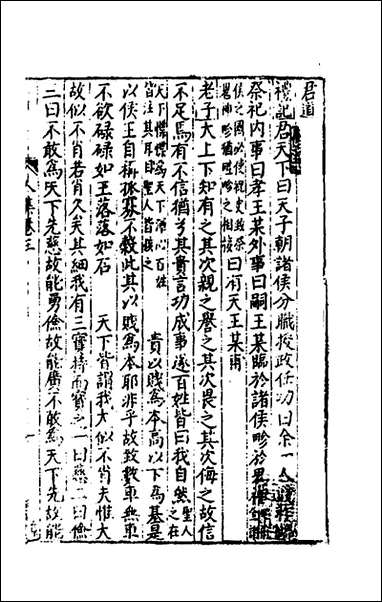 君道
禮記君天下曰天子朝諸侯分職授政任功曰余一人
祭祀内事曰孝王某外事曰嗣王某臨於諸侯畛於鬼神
曰有天王某甫
老子大上下知有之其次親之譽之其次畏之其次侮之故信
不足焉有不信猶兮其貴言功成事遂百姓皆曰我自然聖人之在
天下惵惵爲天下渾心百姓皆注其耳目聖人皆孩之
貴以賤爲本高以下爲基是
以侯王自稱孤寡不穀此其以賤爲本耶非乎故致數車無車
不欲碌碌如玉落落如石
天下皆謂我大似不肖夫惟大
故似不肖若肖久矣其細我有三寳持而寳之一曰慈二曰儉
三曰不敢爲天下先慈故能勇儉故能廣不敢爲天下先故能